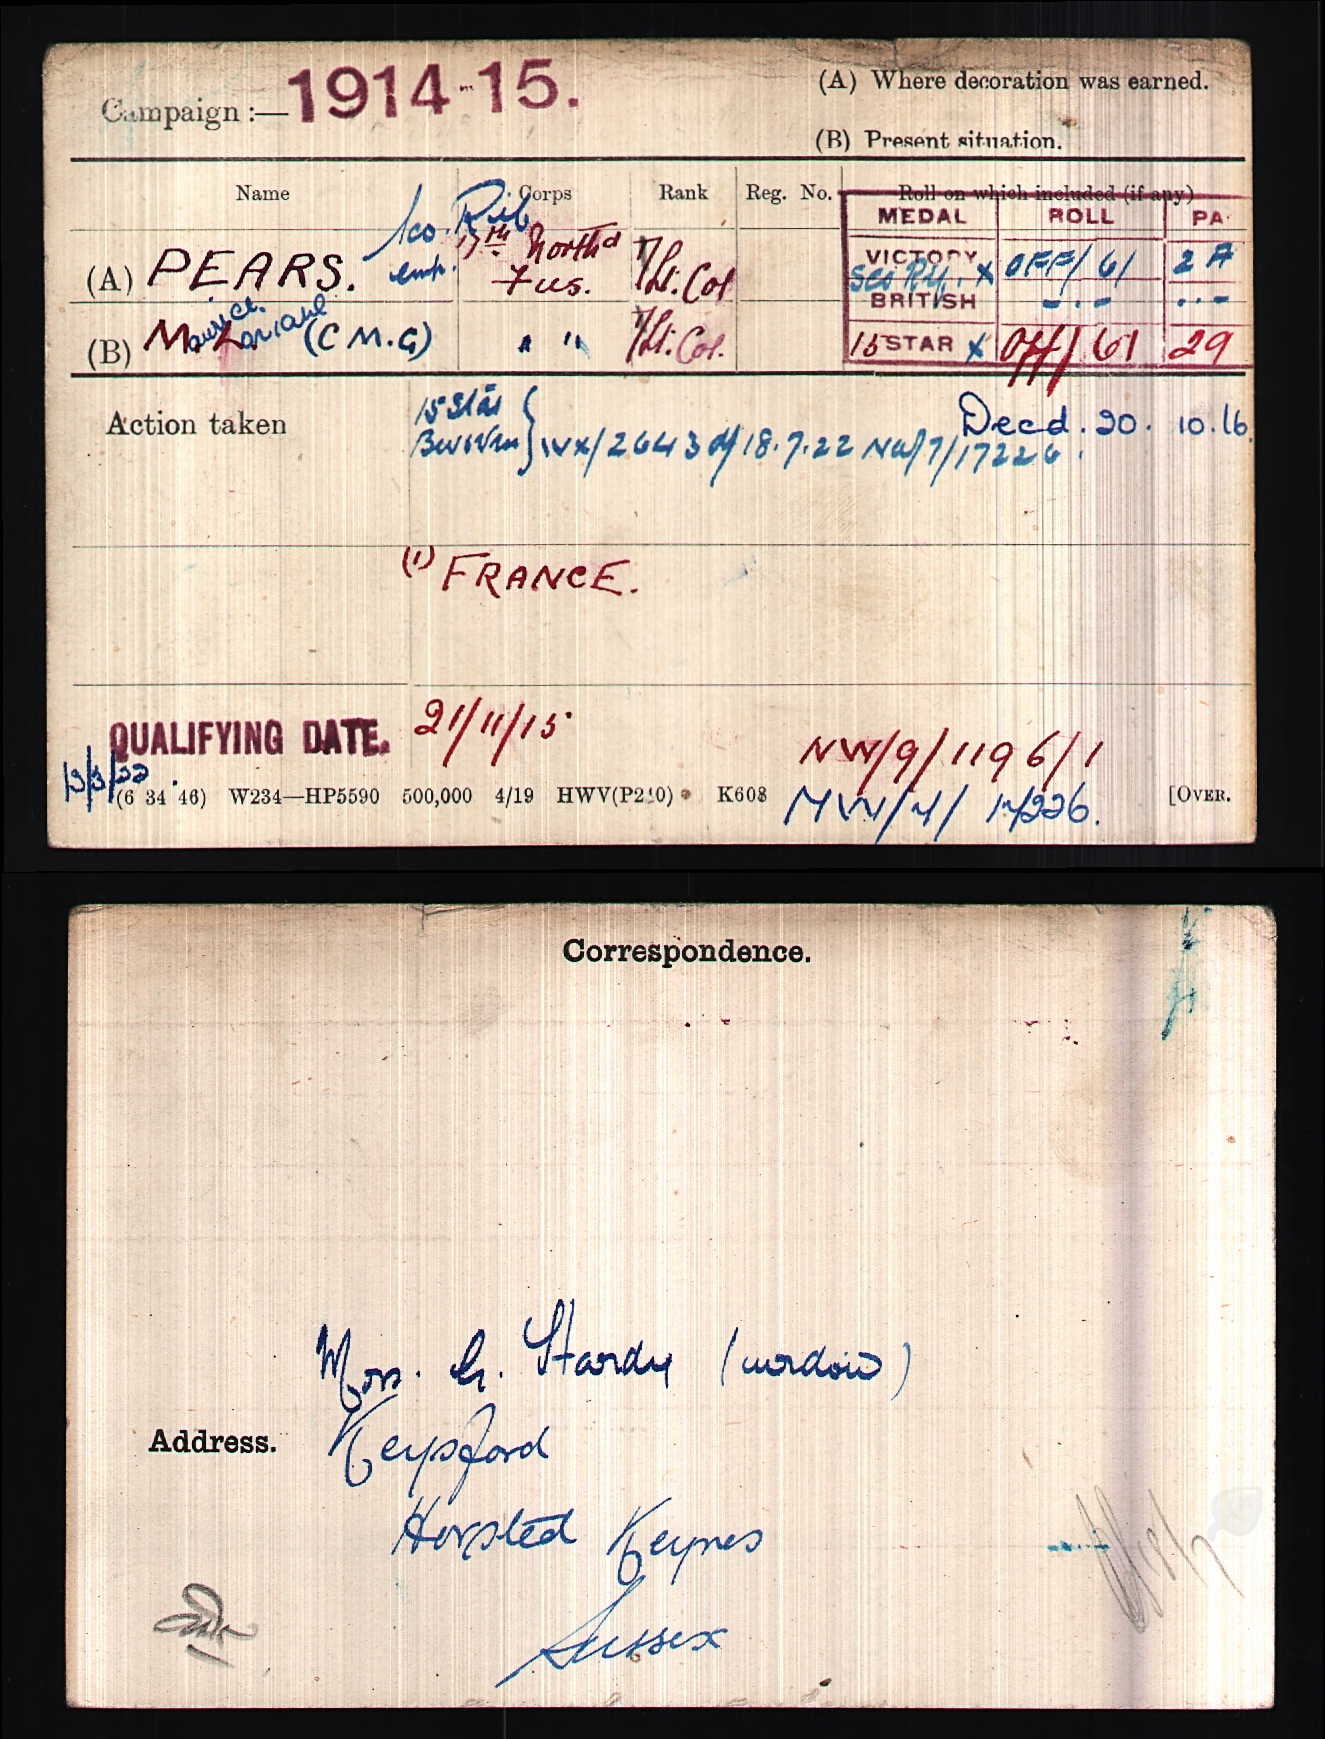 Campaign :— 1914-15.
(A) Where decoration was earned.
(B) Present situation.
Name Corps Rank Reg. No. Roll on which included (if any)
MEDAL ROLL PA
Sco. Rif
(A) PEARS. 17th North'd Fus. T/Lt. Col
VICTORY X OFF/61 2 A
Sco Rif.
BRITISH - . - . . -
(B) Maurice Loriane (C M.G) " " T/Lt. Col.
15 STAR X Off/61 29
Action taken
15 Star
Decd. 20. 10. 16
BW & Vm } WX/2643 of 18.7.22 NW/7/17226.
(1) FRANCE.
QUALIFYING DATE. 21/11/15
NW/9/1196/1
(6 34 46) W234—HP5590 500,000 4/19 HWV(P240) K608
NW/7/17226.
[OVER.
Correspondence.
Mrs. G. Hardy (widow)
Address. Keysford
Horsted Keynes
Sussex